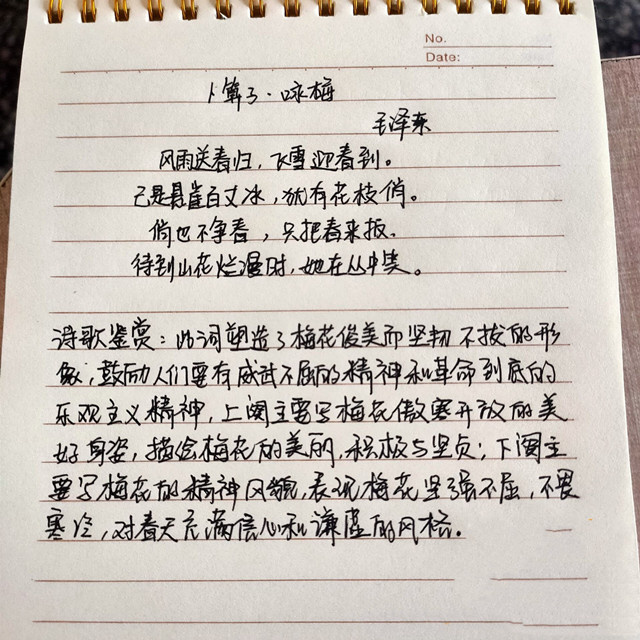 No.
Date:
卜算子·咏梅
毛泽东
风雨送春归，飞雪迎春到。
已是悬崖百丈冰，犹有花枝俏。
俏也不争春，只把春来报。
待到山花烂漫时，她在丛中笑。
诗歌鉴赏：此词塑造了梅花俊美而坚韧不拔的形
象，鼓励人们要有威武不屈的精神和革命到底的
乐观主义精神，上阕主要写梅花傲寒开放的美
好身姿，描绘梅花的美丽，积极与坚贞；下阕主
要写梅花的精神风貌，表现梅花坚强不屈，不畏
寒冷，对春天充满信心和谦虚的风格。